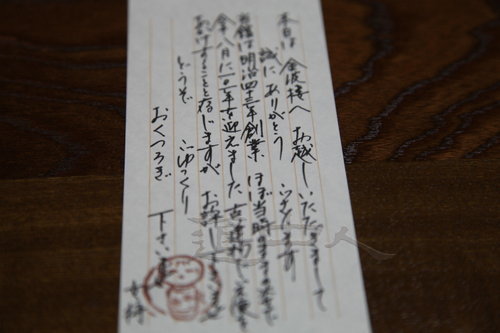 本日は 金波楼へ お越しいただきまして
誠にありがとうございます
当館は明治四十三年創業 ほぼ当時のままの姿で
今年八月に101年を迎えました 古い建物でご不便を
おかけすることと存じますが お許し下さいませ
どうぞ ごゆっくり
おくつろぎ 下さいませ
女将